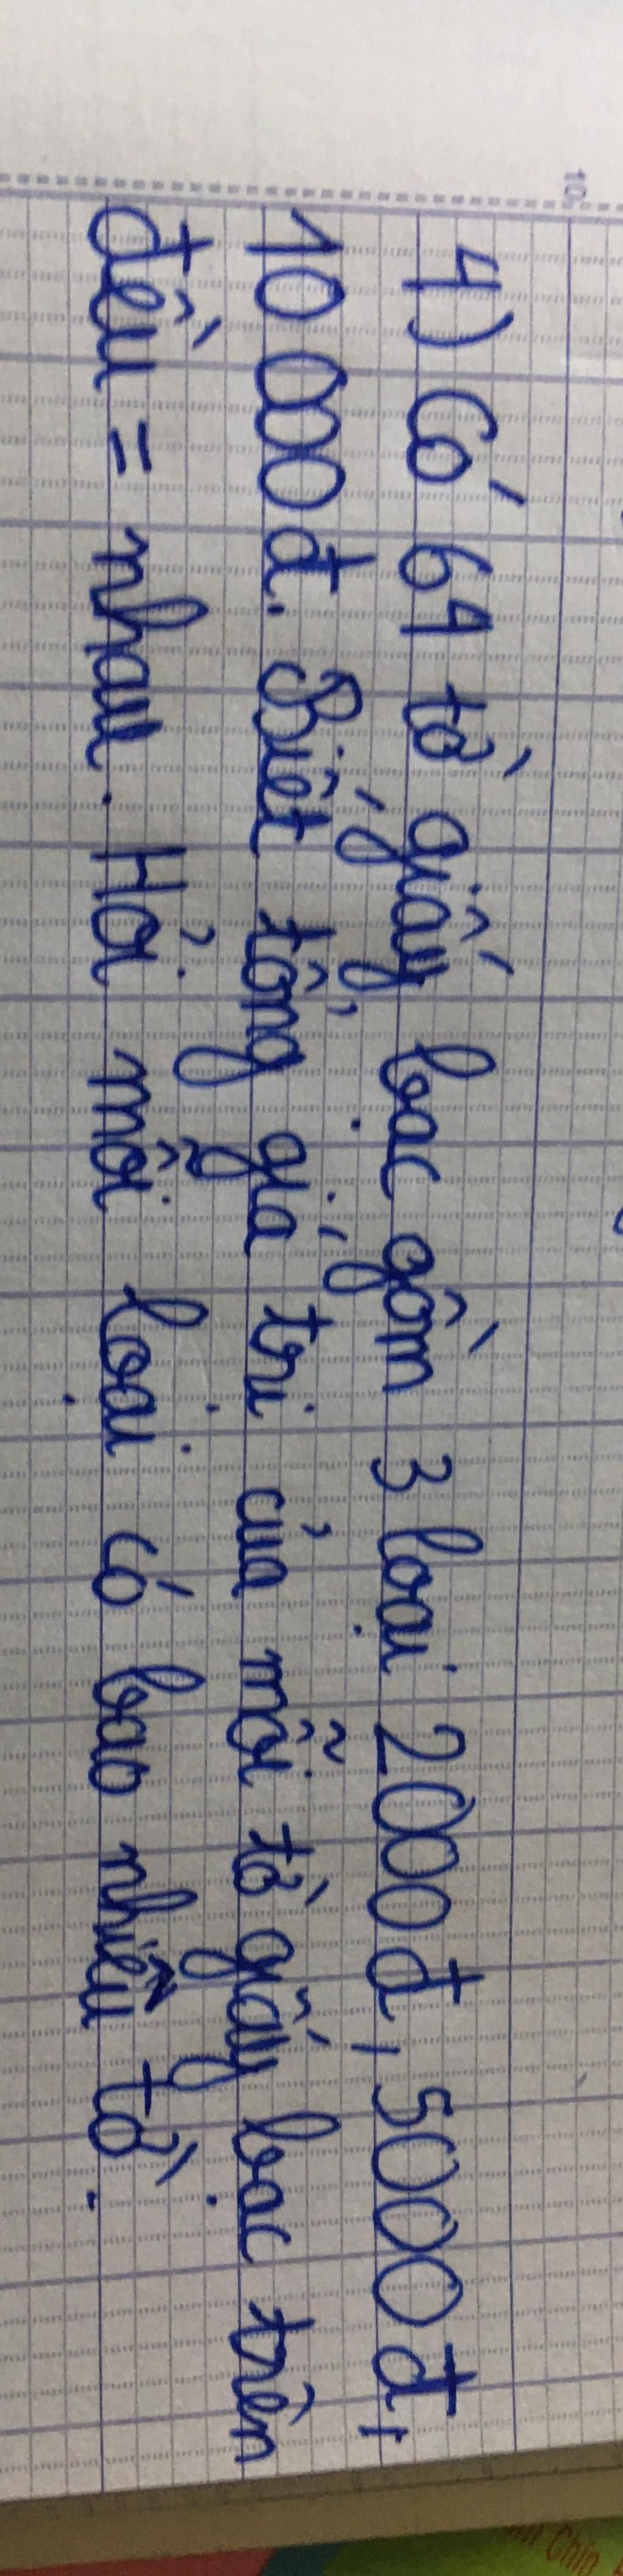 4) Có 64 tờ giấy bạc gồm 3 loại 2000đ, 5000đ,
10 000đ. Biết tổng giá trị của mỗi tờ giấy bạc trên
đều = nhau. Hỏi mỗi loại có bao nhiêu tờ.
10